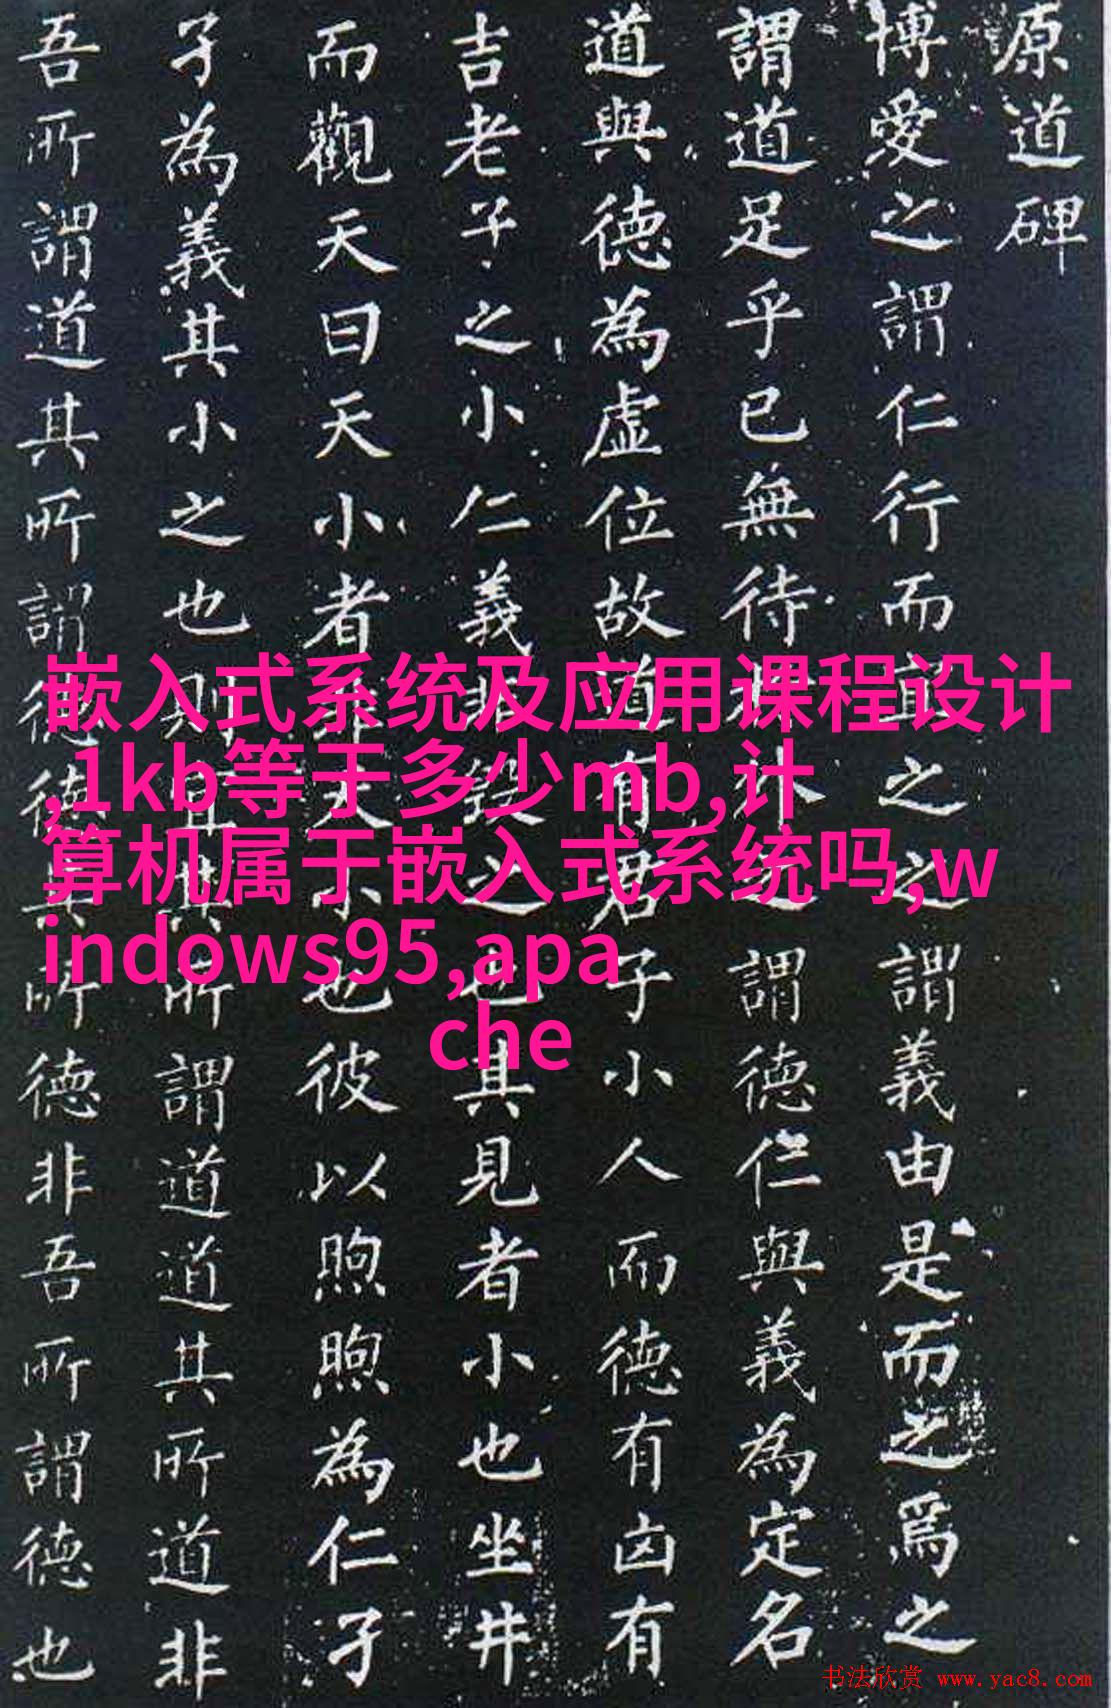 原道碑
博愛之謂仁行而之之謂義由是而之爲之
謂道足乎已無待外之謂德仁與義為定名
道與德為虛位故道有君子小人而德有凶有
吉老子之小仁義非毀之也其見者小也坐井
而觀天曰天小者非天小也彼以煦煦為仁孑
孑為義其小之也則其其所謂道道其所道非
吾所謂道其所謂德德其所德非吾所謂德也
嵌入式系统及应用课程设计
,1kb等于多少mb,计
算机属于嵌入式系统吗,w
indows95,apa
che
书法欣赏 www.yac8.com